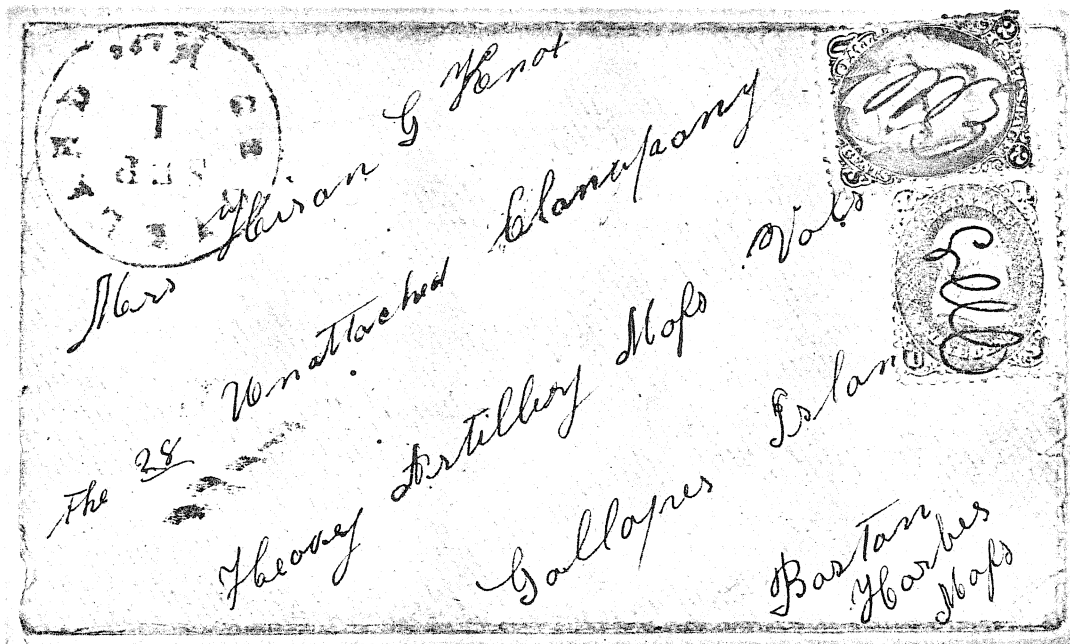 Mars Hiran G Knot
The 28 Unattached Clamupany
Heavey Artillery Mass Vols
Gallopes Islan
Bostan
Harbes
Mass
SEP
1